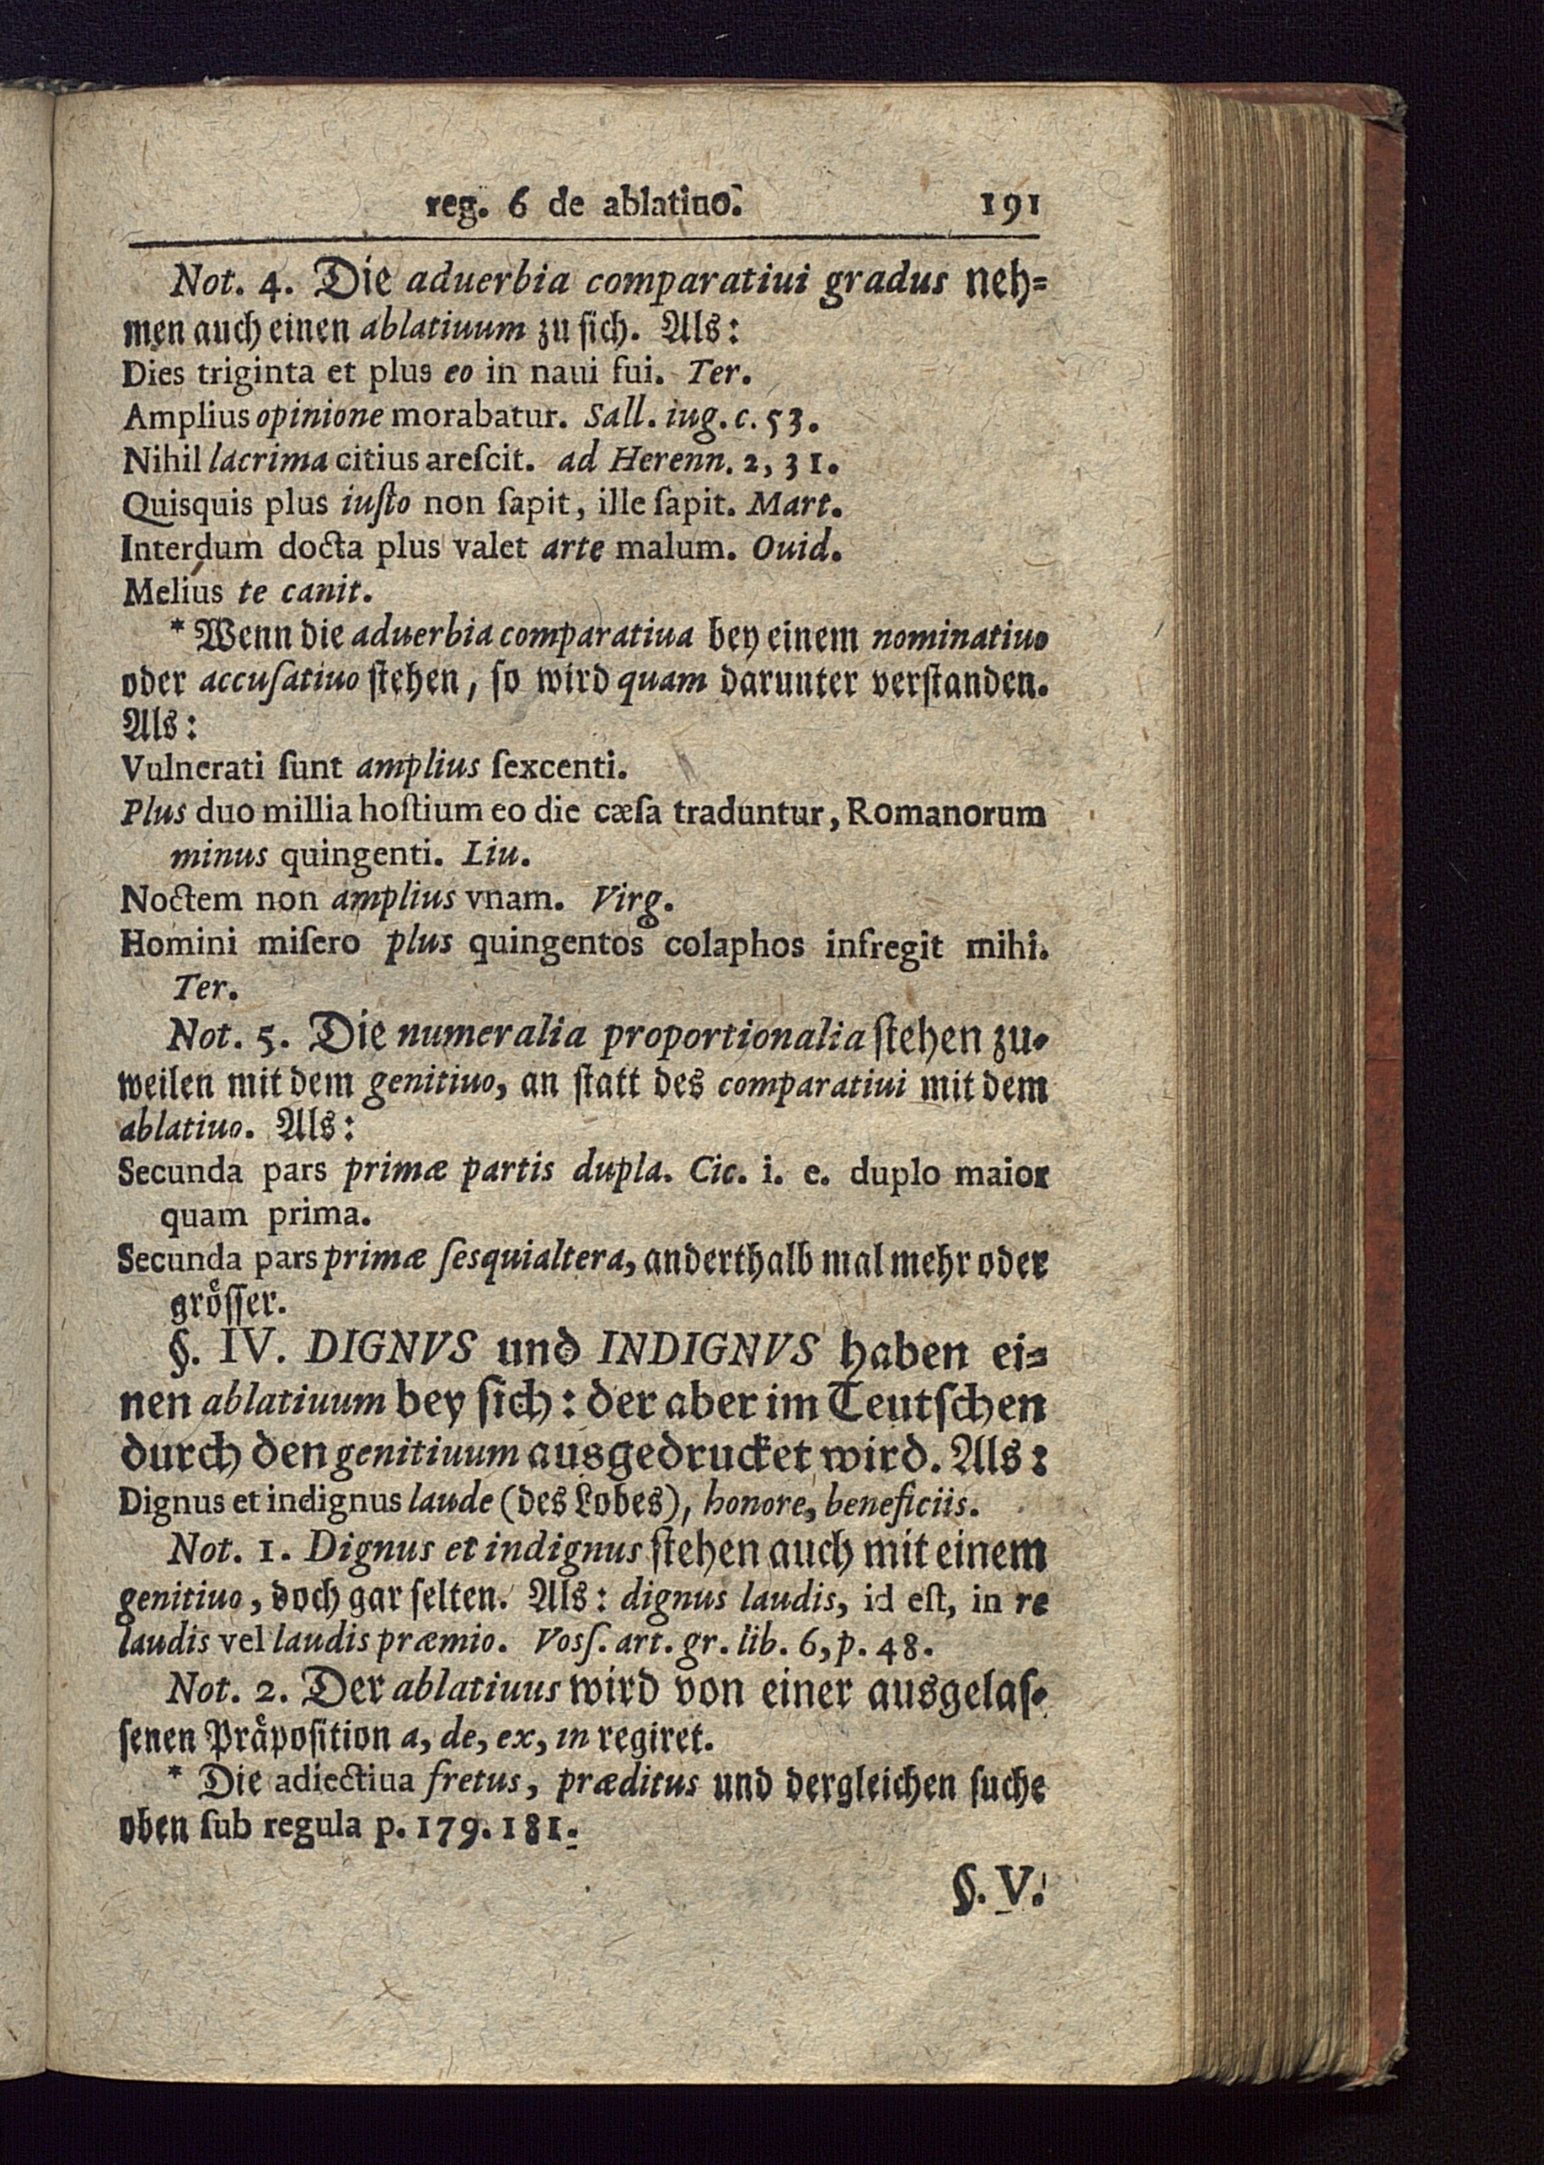 reg. 6 de ablatiuo. 191
Not. 4. Die aduerbia comparatiui gradus neh-
men auch einen ablatiuum zu sich. Als:
Dies triginta et plus eo in naui fui. Ter.
Amplius opinione morabatur. Sall. iug. c. 53.
Nihil lacrima citius areſcit. ad Herenn. 2, 31.
Quisquis plus iuſto non ſapit, ille ſapit. Mart.
Interdum docta plus valet arte malum. Ouid.
Melius te canit.
* Wenn die aduerbia comparatiua bey einem nominatiuo
oder accuſatiuo ſtehen, ſo wird quam darunter verſtanden.
Als:
Vulnerati ſunt amplius ſexcenti.
Plus duo millia hoſtium eo die cæſa traduntur, Romanorum
minus quingenti. Liu.
Noctem non amplius vnam. Virg.
Homini miſero plus quingentos colaphos infregit mihi.
Ter.
Not. 5. Die numeralia proportionalia ſtehen zu-
weilen mit dem genitiuo, an ſtatt des comparatiui mit dem
ablatiuo. Als:
Secunda pars primæ partis dupla. Cic. i. e. duplo maior
quam prima.
Secunda pars primæ ſesquialtera, anderthalb mal mehr oder
gröſſer.
§. IV. DIGNVS und INDIGNVS haben ei-
nen ablatiuum bey ſich: der aber im Teutſchen
durch den genitiuum ausgedrucket wird. Als:
Dignus et indignus laude (des Lobes), honore, beneficiis.
Not. 1. Dignus et indignus ſtehen auch mit einem
genitiuo, doch gar ſelten. Als: dignus laudis, id eſt, in re
laudis vel laudis præmio. Vosſ. art. gr. lib. 6, p. 48.
Not. 2. Der ablatiuus wird von einer ausgelaſ-
ſenen Präpoſition a, de, ex, in regiret.
* Die adiectiua fretus, præditus und dergleichen ſuche
oben ſub regula p. 179. 181.
§. V.